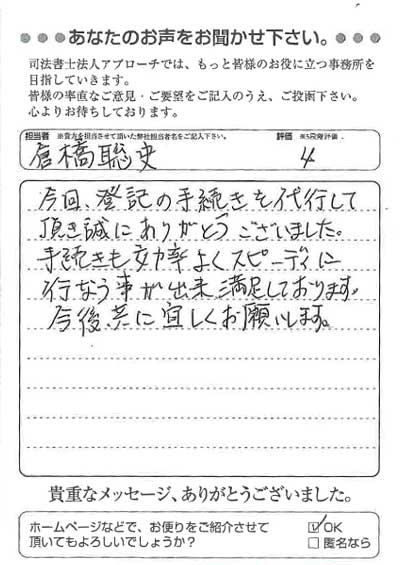 ●●●あなたのお声をお聞かせ下さい。●●●
司法書士法人アプローチでは、もっと皆様のお役に立つ事務所を
目指していきます。
皆様の率直なご意見・ご要望をご記入のうえ、ご投函下さい。
心よりお待ちしております。
担当者 ※貴方を担当させて頂いた弊社担当者名をご記入下さい。 評価 ※5段階評価
倉橋聡史 4
今回、登記の手続きを代行して
頂き誠にありがとうございました。
手続きも効率よくスピーディに
行なう事が出来満足しております。
今後共に宜しくお願いします。
貴重なメッセージ、ありがとうございました。
ホームページなどで、お便りをご紹介させて
頂いてもよろしいでしょうか？
☑OK
□匿名なら